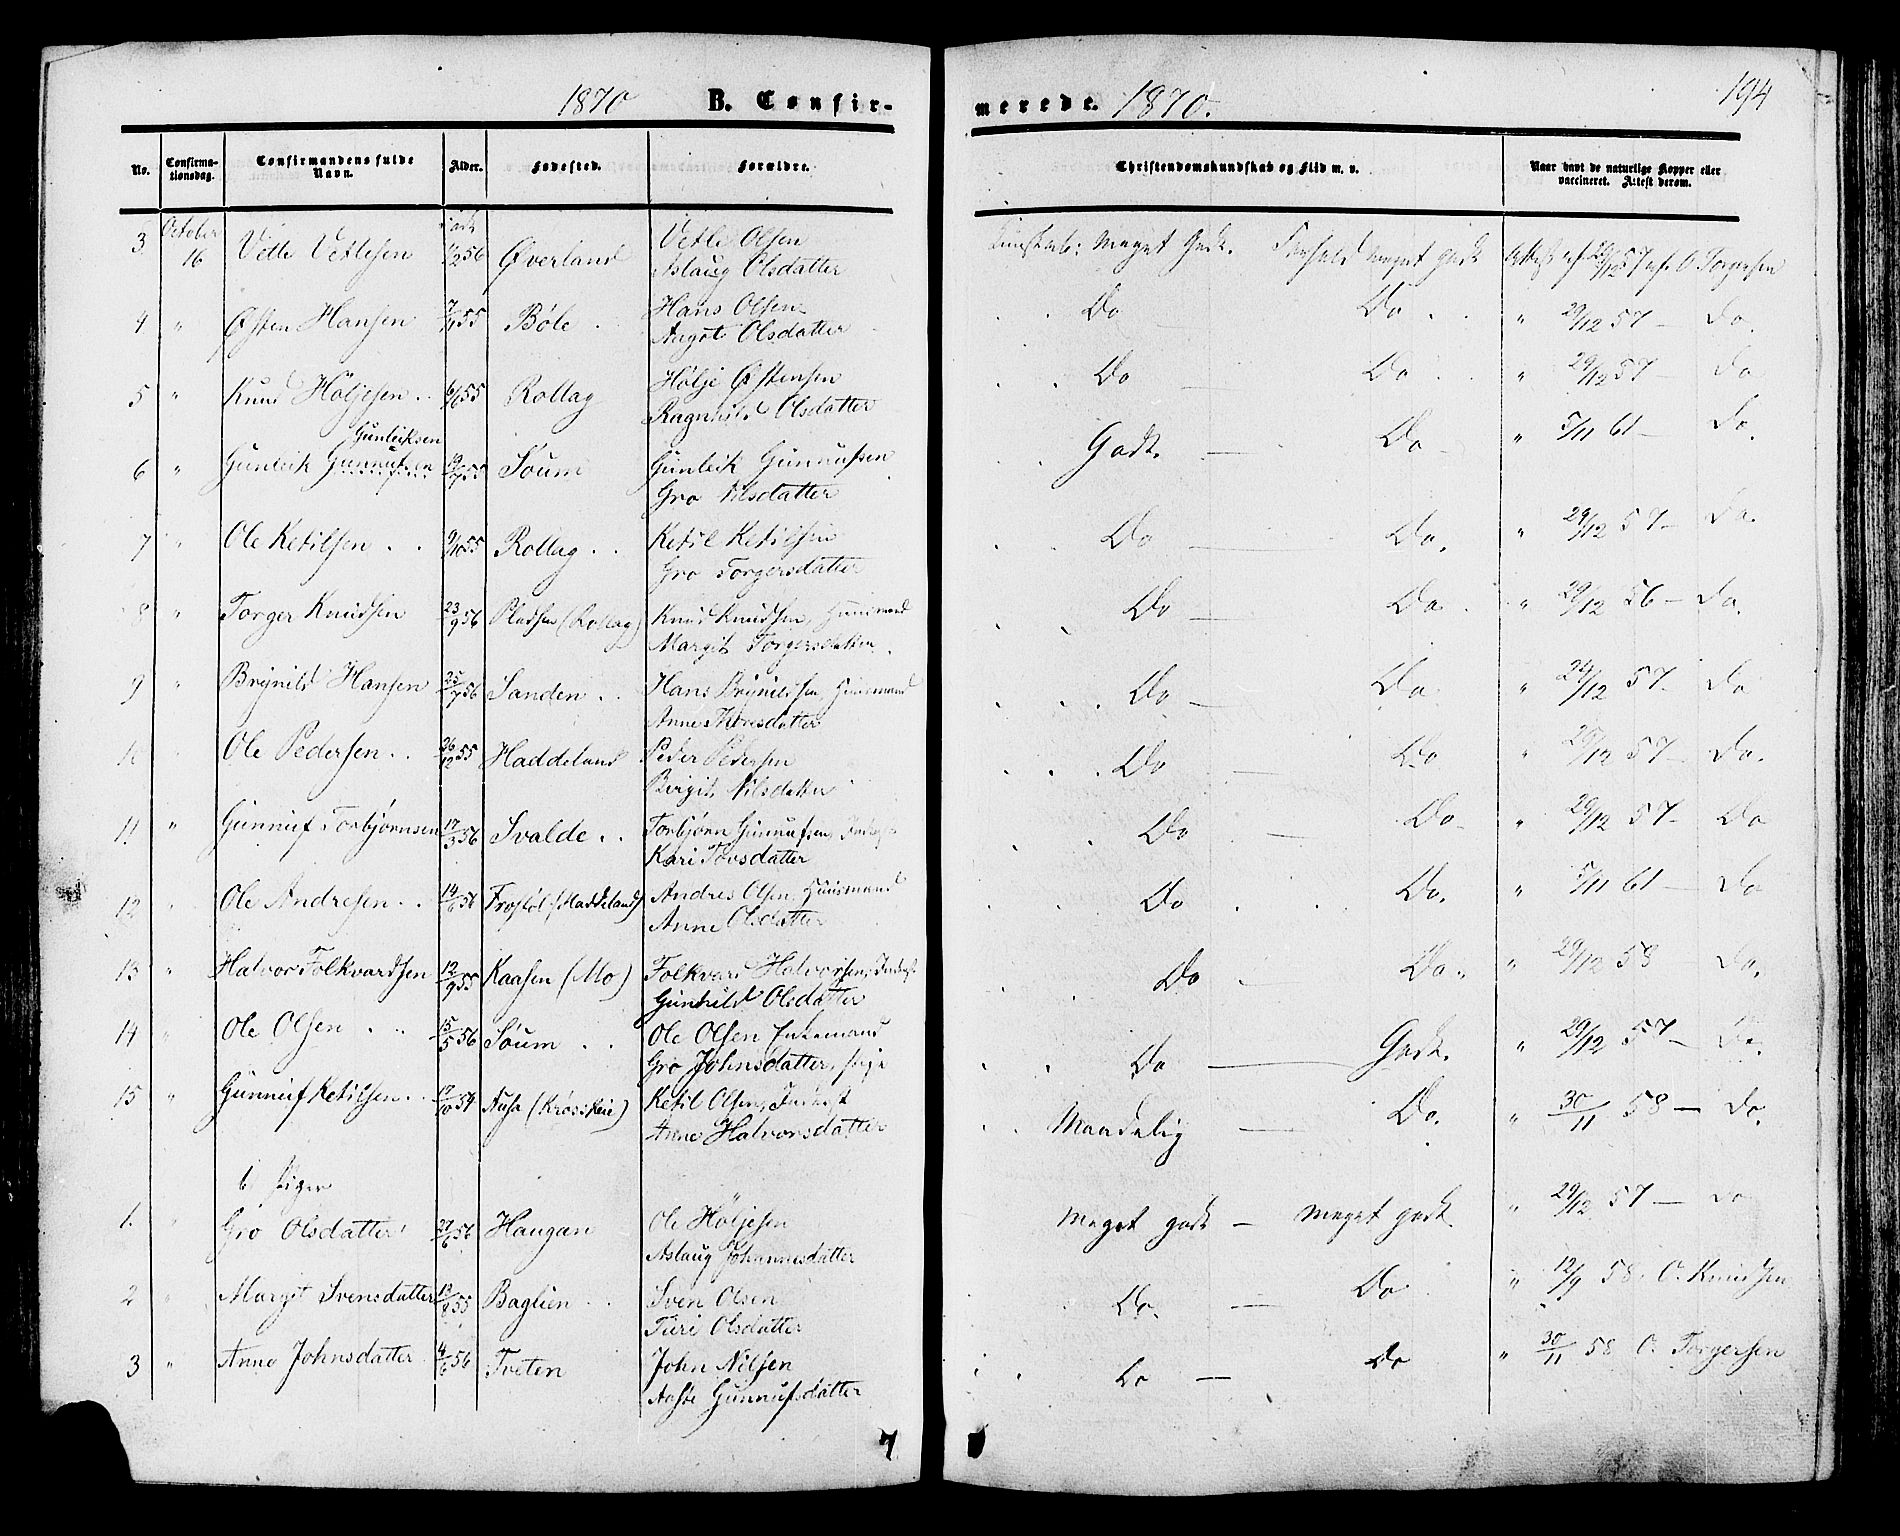 1870 B. Confir-
merede. 1870.
194
No. Confirma-tionsdag. Confirmandens fulde Navn. Alder. Fødested. Forældre. Christendomskundskab og Flid m. v. Naar havt de naturlige Kopper eller vaccineret. Attest derom.
3 October 16 Vetle Vetlesen 1/2 56 Øverland Vetle Olsen
Aslaug Olsdatter Kundskab: Meget Godt. Forhold meget godt Attest af 29/12 57 af O Torgersen
4 " Østen Hansen 7/11 55 Bøle Hans Olsen
Angot Olsdatter Do Do " 29/12 57 - Do.
5 " Knud Høljesen 6/6 55 Rollag Hølje Østensen
Ragnhild Olsdatter Do Do " 29/12 57 - Do
Gunleiksen
6 " Gunleik Gunnufsen 19/7 55 Soum Gunleik Gunnufsen
Gro Nilsdatter Godt. Do " 5/11 61 - Do.
7 " Ole Ketilsen 9/10 55 Rollag Ketil Ketilsen
Gro Torgersdatter Do Do. " 29/12 57 - Do.
8 " Torger Knudsen 23/9 56 Pladsen (Rollag) Knud Knudsen, Huusmand
Margit Torgersdatter Do Do " 29/12 56 - Do.
9 " Brynild Hansen 25/7 56 Sanden Hans Brynildsen, Huusmand
Anne Thorsdatter Do Do " 24/12 57 - Do
Ole Pedersen 26/12 55 Haddeland Peder Pedersen
Birgit Nilsdatter Do Do " 29/12 57 - Do.
11 " Gunnuf Torbjørnsen 17/3 56 Svalde Torbjørn Gunnufsen, Inderst
Kari Tovsdatter Do Do " 29/12 57 - Do
12 " Ole Andresen 14/6 56 (Haddeland) Andres Olsen, Huusmand
Anne Olsdatter Do Do. " 5/11 61 - Do
13 " Halvor Folkvardsen 12/9 55 Kaasen (Mo) Folkvard Halvorsen, Inderst
Gunhild Olsdatter Do Do. " 29/12 58 - Do.
14 " Ole Olsen 15/5 56 Soum Ole Olsen Enkemand
Gro Johnsdatter, Pige Do Godt. " 29/12 57 - Do.
15 " Gunnuf Ketilsen 54 (Krosskeie) Ketil Olsen, Inderst
Anne Halvorsdatter Maadelig Do. " 30/11 58 - Do.
b) Piger
1. " Gro Olsdatter 27/6 56 Haugan Ole Høljesen
Aslaug Johannesdatter Meget godt - Meget godt " 29/12 57 - Do
2 " Margit Svensdatter 55 Baglien Sven Olsen
Turi Olsdatter Do. Do " 12/9 58. O. Knudsen
3 " Anne Johnsdatter 4/6 56 Treten John Nilsen
Aasbe Gunnufsdatter Do Do " 30/11 58 O. Torgersen